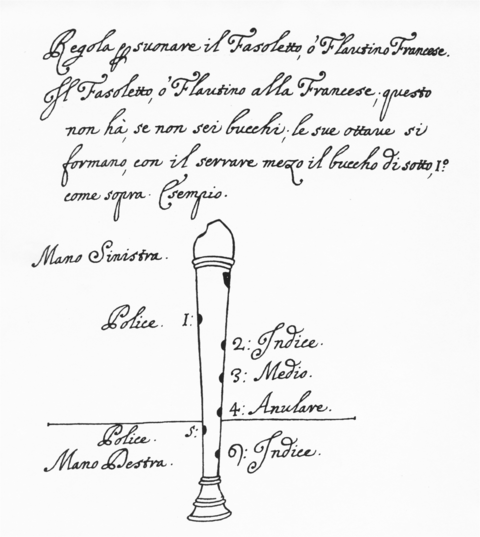 Regola p suonare il Fasoletto, ò Flautino Francese.
Il Fasoletto, ò Flautino alla Francese, questo
non hà, se non sei bucchi; le sue ottaue si
formano, con il serrare mezo il buccho di sotto, 1º
come sopra. Esempio.
Mano Sinistra.
Police. 1:
2: Indice.
3: Medio.
4: Anulare.
Police. 5:
Mano Destra.
6: Indice.